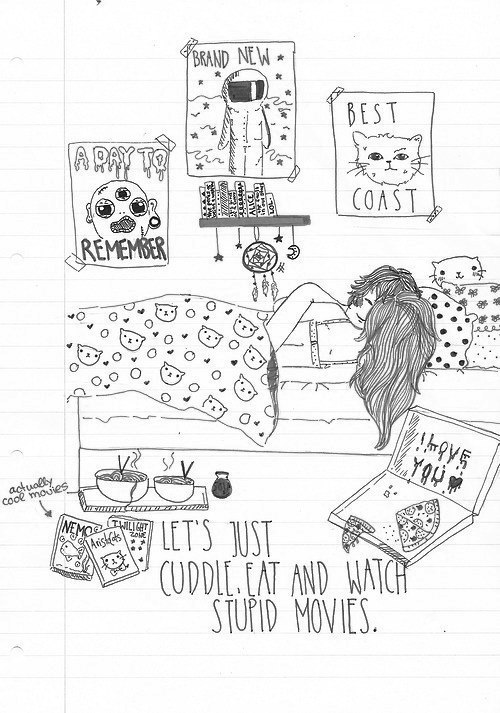 BRAND NEW
BEST
COAST
A DAY TO
REMEMBER
I LOVE
YOU
actually
cool movies
NEMO
Aristocats
TWILIGHT
ZONE
LET'S JUST
CUDDLE, EAT AND WATCH
STUPID MOVIES.